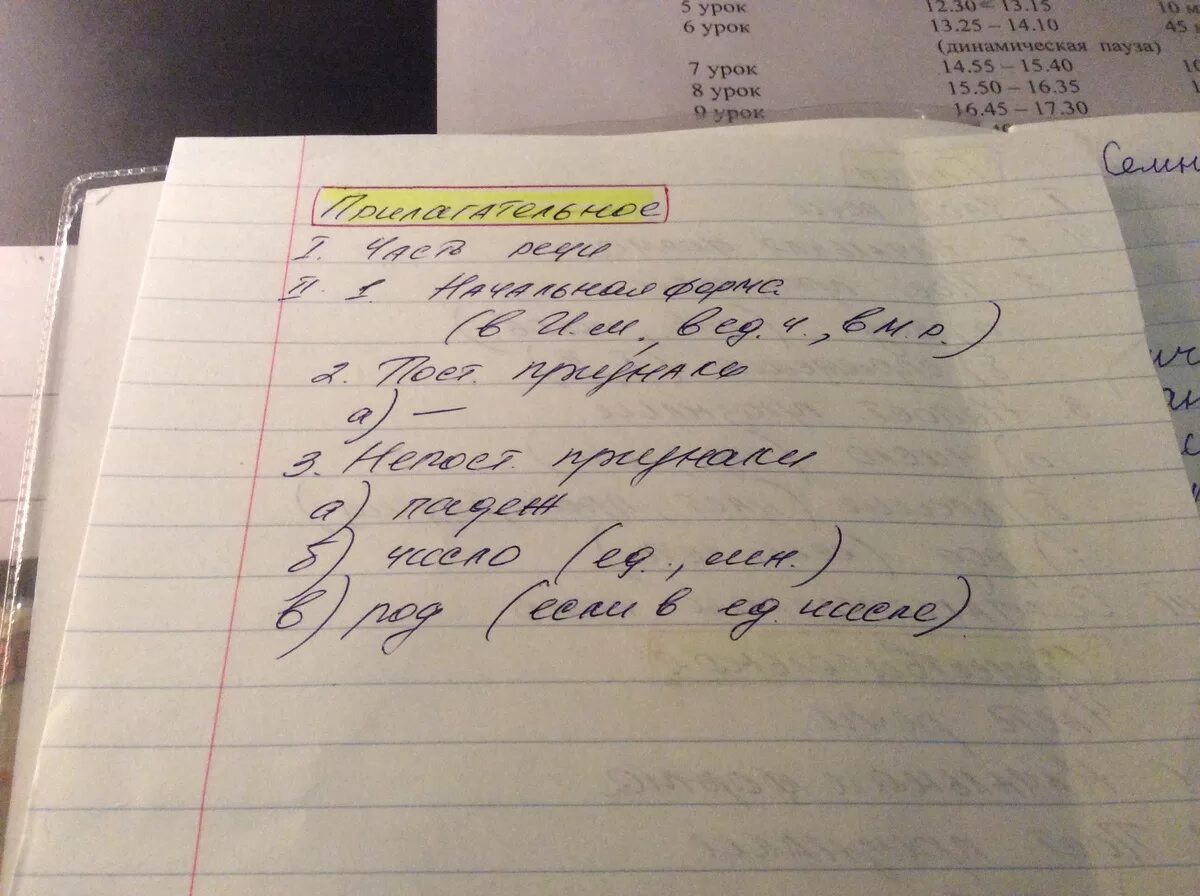 5 урок 12.30 – 13.15 10 м
6 урок 13.25 – 14.10 45
(динамическая пауза)
7 урок 14.55 – 15.40 10
8 урок 15.50 – 16.35 1
9 урок 16.45 – 17.30
Семн
Прилагательное
I. Часть речи
II. 1. Начальная форма
(в И.п., в ед.ч., в м.р.)
2. Пост. признаки
а) —
3. Непост. признаки
а) падеж
б) число (ед., мн.)
в) род (если в ед. числе)